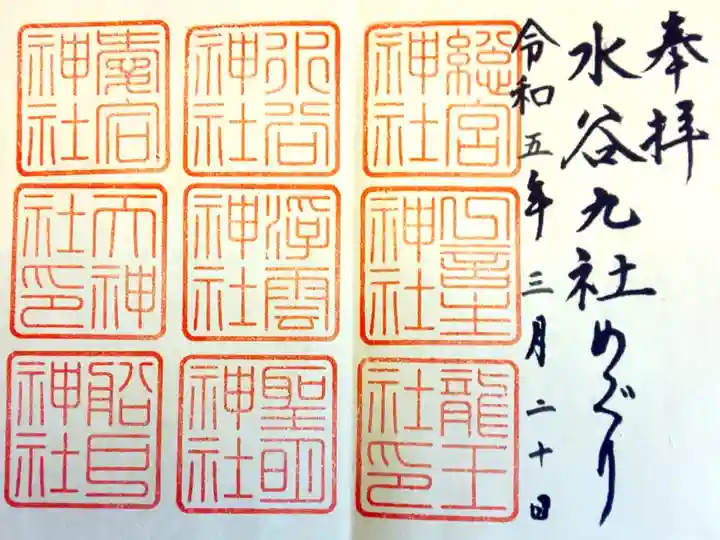 奉拝
水谷九社めぐり
令和五年三月二十日
総宮神社
水谷神社
愛宕神社
神社
浮雲神社
天神社印
龍王社印
聖明神社
船玉神社